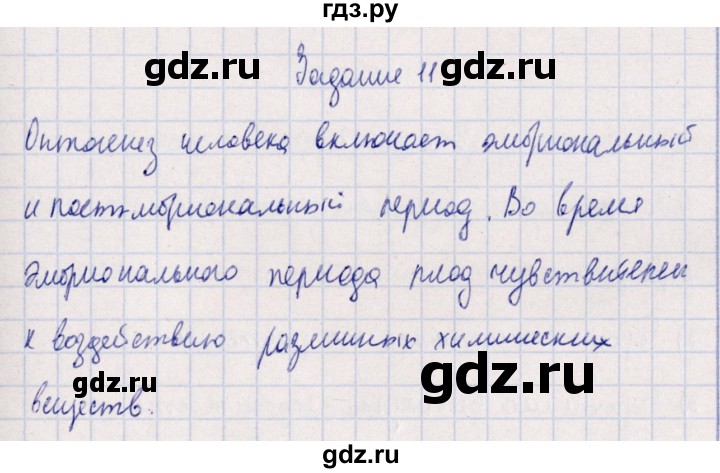 гдз.ру
gdz.ru gdz.ru
Задание 11
Онтогенез человека включает эмбриональный
и постэмбриональный период. Во время
gdz.ru gdz.ru
эмбрионального периода плод чувствителен
к воздействию различных химических
веществ.
gdz.ru gdz.ru
гдз.ру